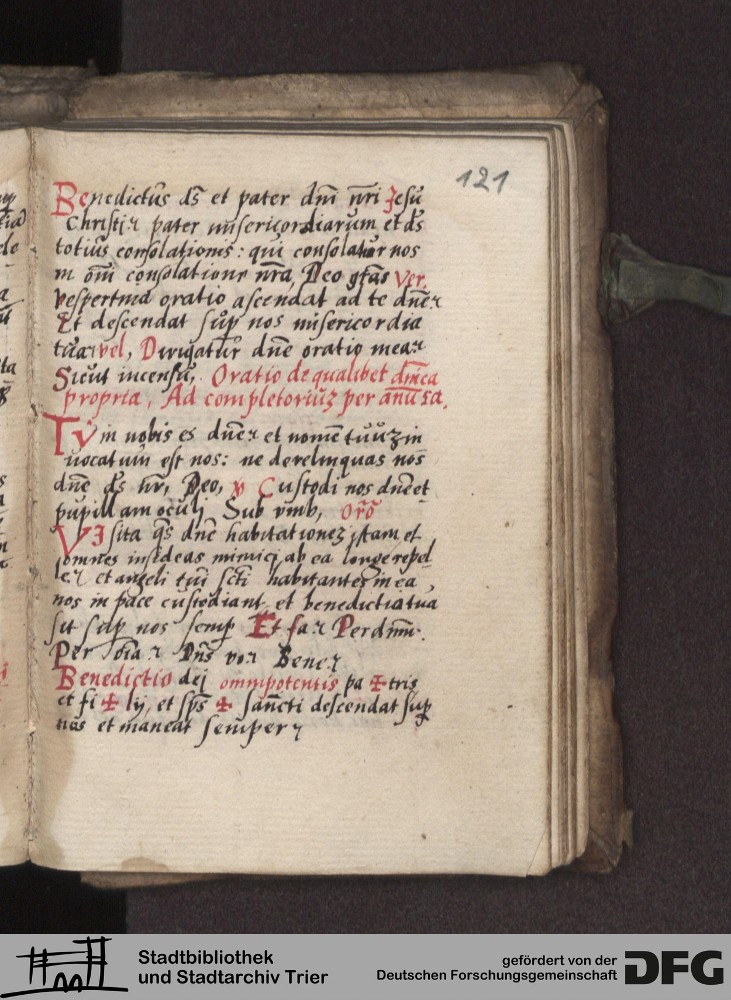 121
Benedictus ds̄ et pater dm̄ nr̄i Jesu
Christi pater misericordiarum et ds̄
totius consolationis: qui consolatur nos
in om̄i consolatione nr̄a, Deo gr̄as Ver.
vespertina oratio ascendat ad te dn̄e
Et descendat sup̱ nos misericordia
tua vel, Dirigatur dn̄e oratio mea
Sicut incensu, Oratio de qualibet dn̄ica
propria, Ad completoriuȝ per
Tu in nobis es dn̄e et nomē tuuȝ in
uocatum est nos: ne derelinquas nos
dn̄e ds̄ nr̄, Deo, v Custodi nos dn̄e et
pupillam oculj Sub vmb, Orō
VIsita qs̄ dn̄e habitationeȝ istam et
omnes insideas inimicj ab ea longe repel
le et angeli tui scti habitantes in ea,
nos in pace custodiant, et benedictio tua
sit sup̱ nos semp̱ Et fa Per dm̄.
Per Dn̄s vo Bene
Benedictio dej omnipotentis pa ✠ tris
et fi ✠ lij, et sps̄ ✠ sancti descendat sup̱
nos et maneat semper
Stadtbibliothek
und Stadtarchiv Trier
gefördert von der
Deutschen Forschungsgemeinschaft
DFG